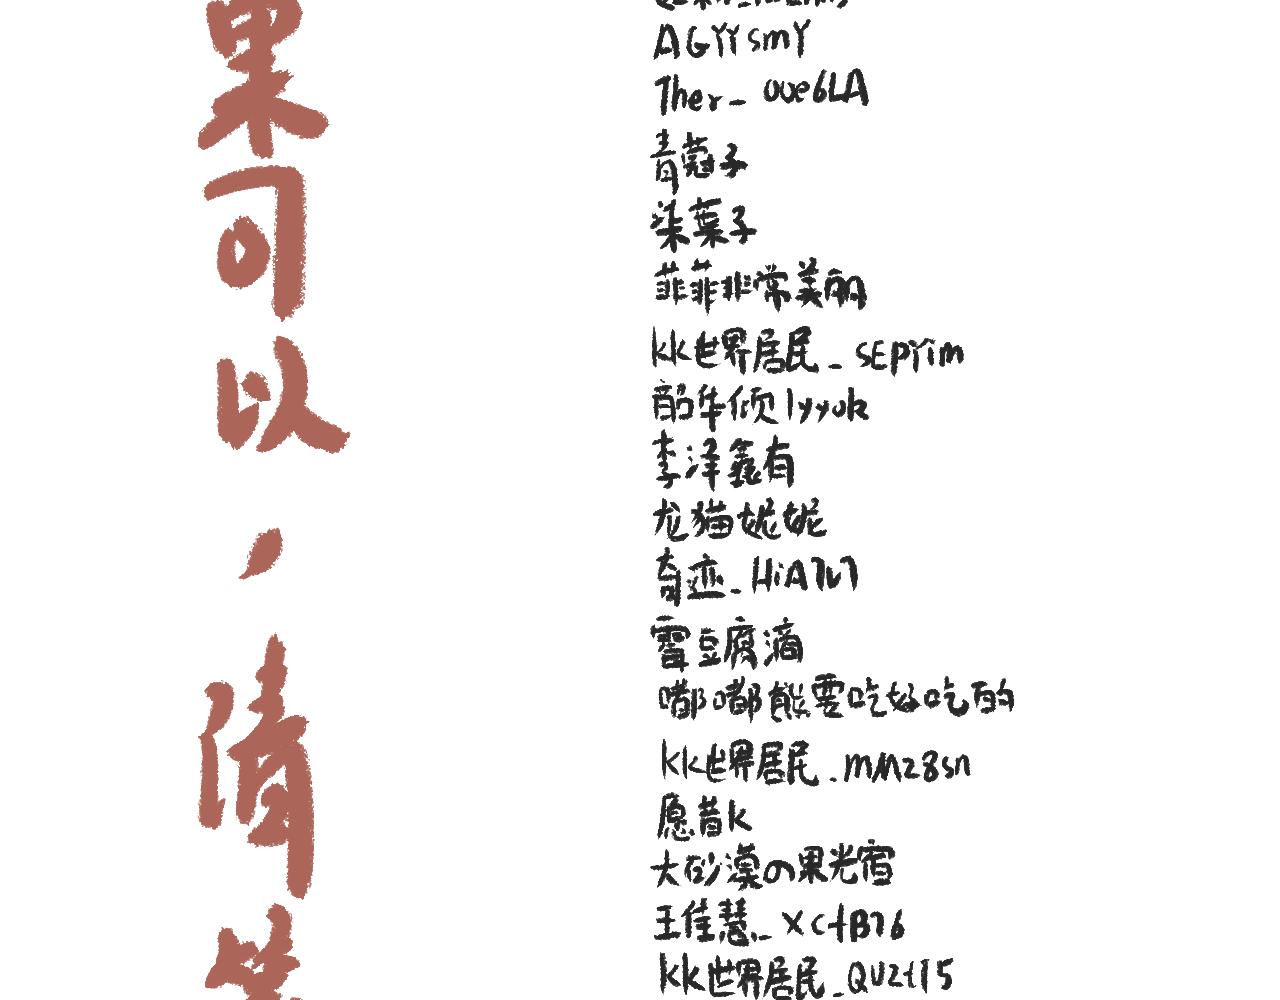 果可以，
AGYYsmY
Ther_oue6LA
青蒄子
柒葉子
菲菲非常美丽
kk世界居民_SEPYim
韶华倾lyyok
李泽鑫有
龙猫妮妮
奇迹_HiA7v7
雪豆腐滴
嘟嘟熊要吃好吃的
kk世界居民_mMz8sn
愿昔k
大砂漠の果光宿
王佳慧_xctB76
kk世界居民_QUzt15